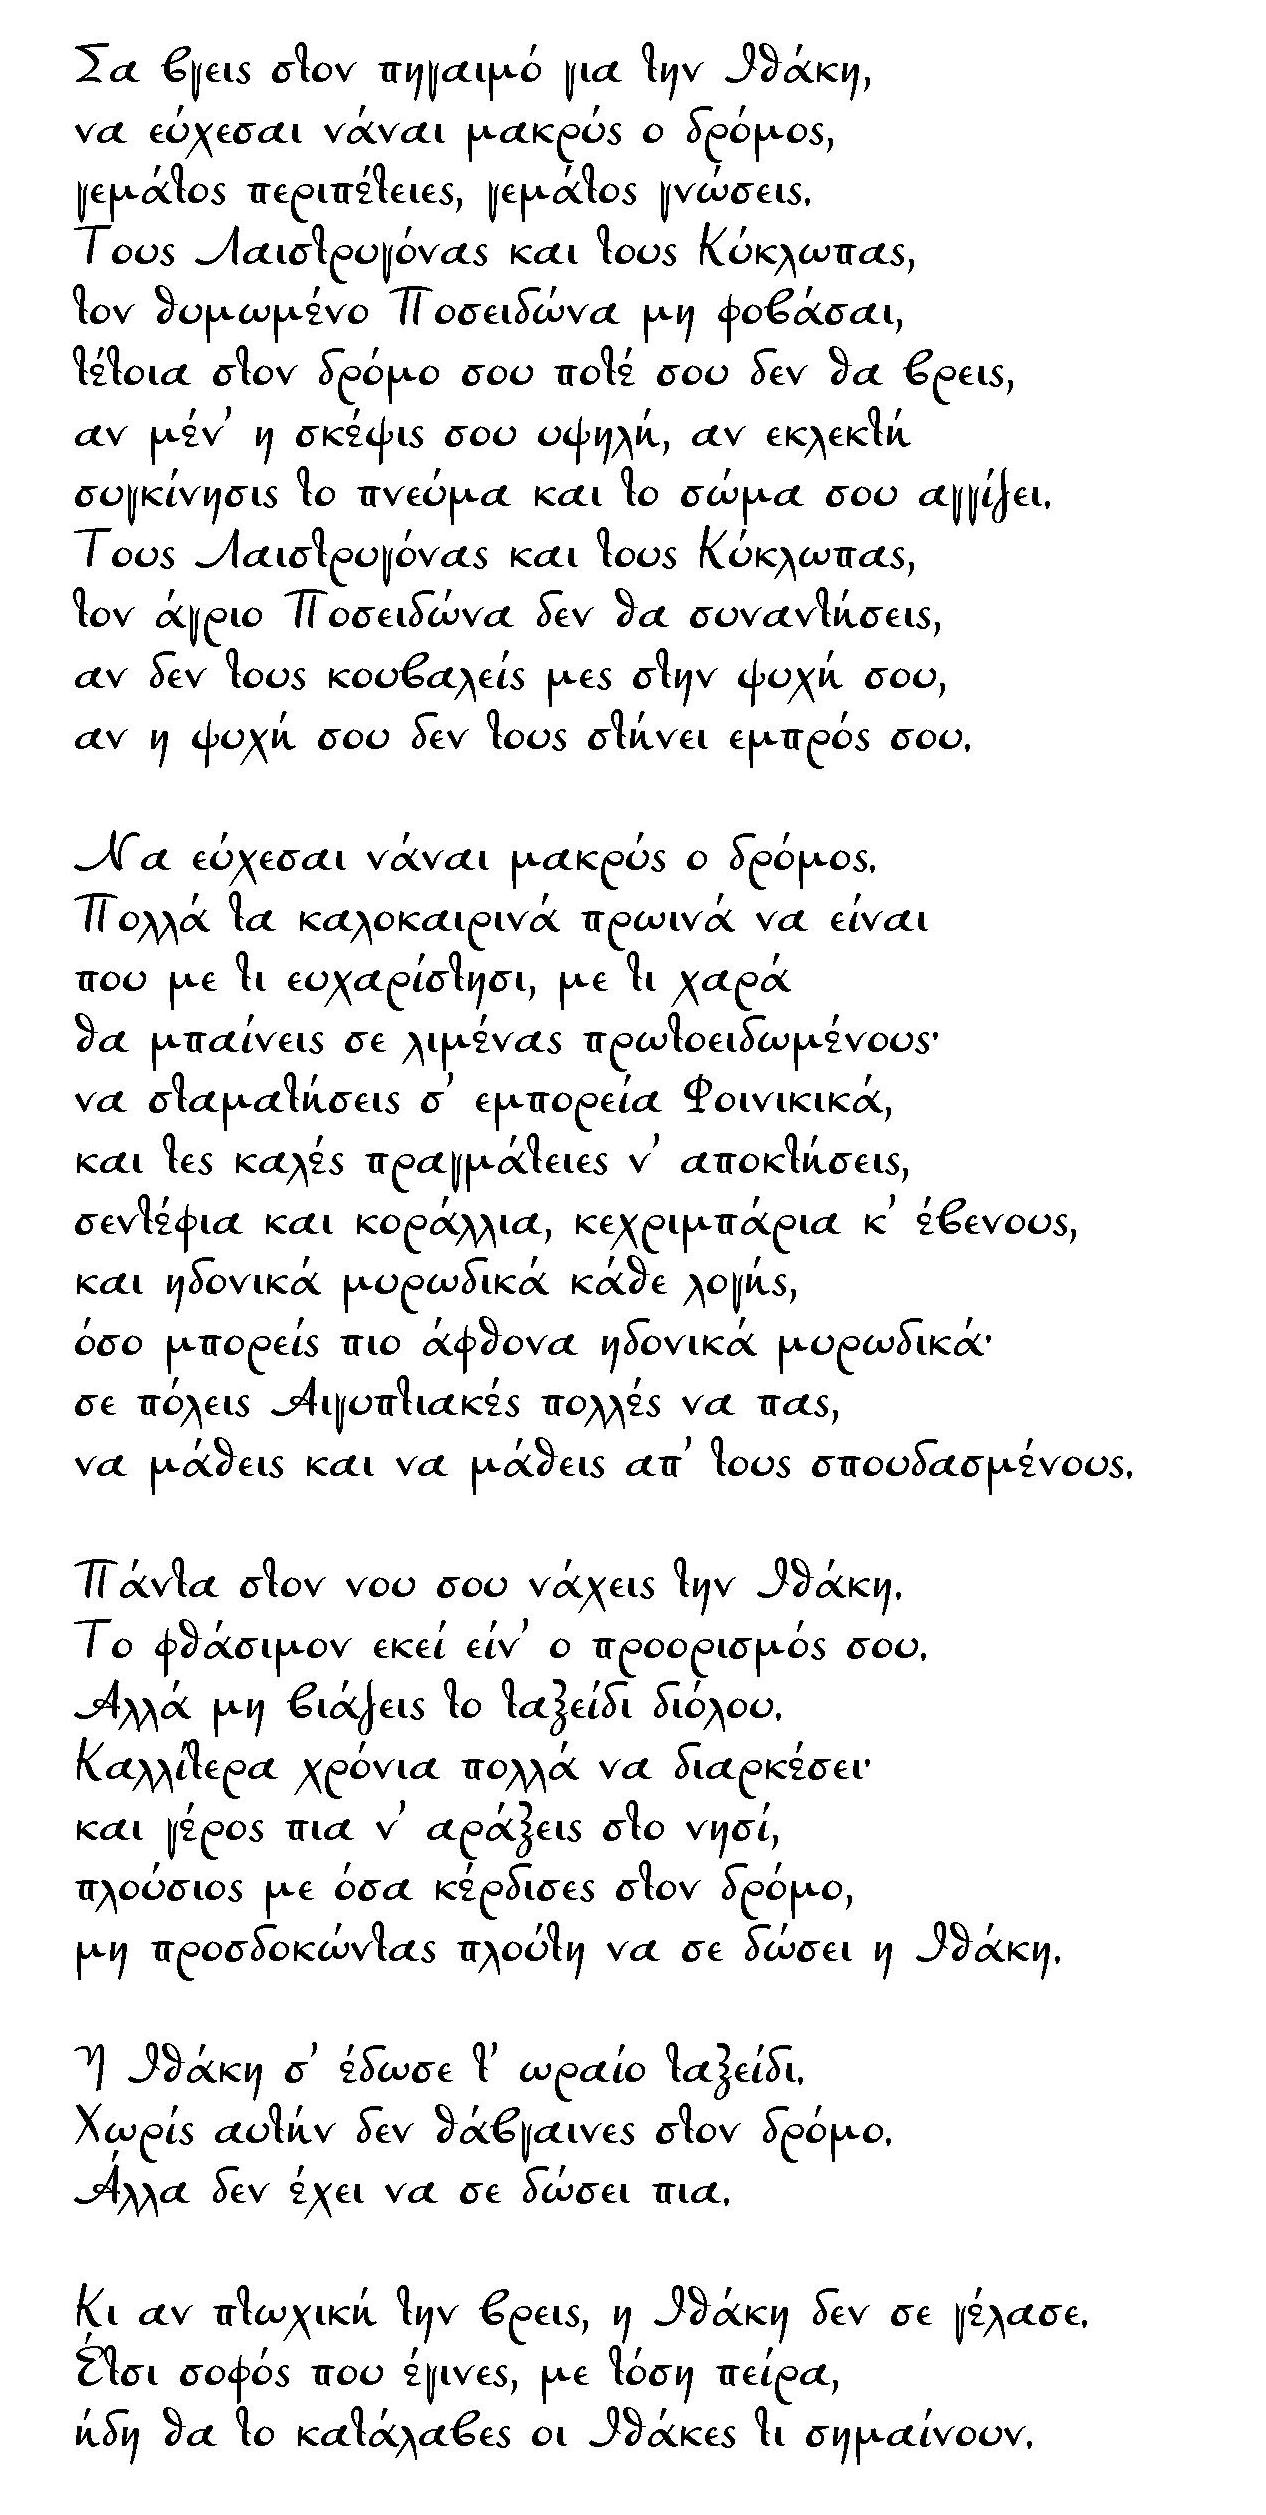 Σα βγεις στον πηγαιμό για την Ιθάκη,
να εύχεσαι νάναι μακρύς ο δρόμος,
γεμάτος περιπέτειες, γεμάτος γνώσεις.
Τους Λαιστρυγόνας και τους Κύκλωπας,
τον θυμωμένο Ποσειδώνα μη φοβάσαι,
τέτοια στον δρόμο σου ποτέ σου δεν θα βρεις,
αν μέν' η σκέψις σου υψηλή, αν εκλεκτή
συγκίνησις το πνεύμα και το σώμα σου αγγίζει.
Τους Λαιστρυγόνας και τους Κύκλωπας,
τον άγριο Ποσειδώνα δεν θα συναντήσεις,
αν δεν τους κουβαλείς μες στην ψυχή σου,
αν η ψυχή σου δεν τους στήνει εμπρός σου.
Να εύχεσαι νάναι μακρύς ο δρόμος.
Πολλά τα καλοκαιρινά πρωινά να είναι
που με τι ευχαρίστησι, με τι χαρά
θα μπαίνεις σε λιμένας πρωτοειδωμένους·
να σταματήσεις σ' εμπορεία Φοινικικά,
και τες καλές πραγμάτειες ν' αποκτήσεις,
σεντέφια και κοράλλια, κεχριμπάρια κ' έβενους,
και ηδονικά μυρωδικά κάθε λογής,
όσο μπορείς πιο άφθονα ηδονικά μυρωδικά·
σε πόλεις Αιγυπτιακές πολλές να πας,
να μάθεις και να μάθεις απ' τους σπουδασμένους.
Πάντα στον νου σου νάχεις την Ιθάκη.
Το φθάσιμον εκεί είν' ο προορισμός σου.
Αλλά μη βιάζεις το ταξείδι διόλου.
Καλλίτερα χρόνια πολλά να διαρκέσει·
και γέρος πια ν' αράξεις στο νησί,
πλούσιος με όσα κέρδισες στον δρόμο,
μη προσδοκώντας πλούτη να σε δώσει η Ιθάκη.
Η Ιθάκη σ' έδωσε τ' ωραίο ταξείδι.
Χωρίς αυτήν δεν θάβγαινες στον δρόμο.
Άλλα δεν έχει να σε δώσει πια.
Κι αν πτωχική την βρεις, η Ιθάκη δεν σε γέλασε.
Έτσι σοφός που έγινες, με τόση πείρα,
ήδη θα το κατάλαβες οι Ιθάκες τι σημαίνουν.